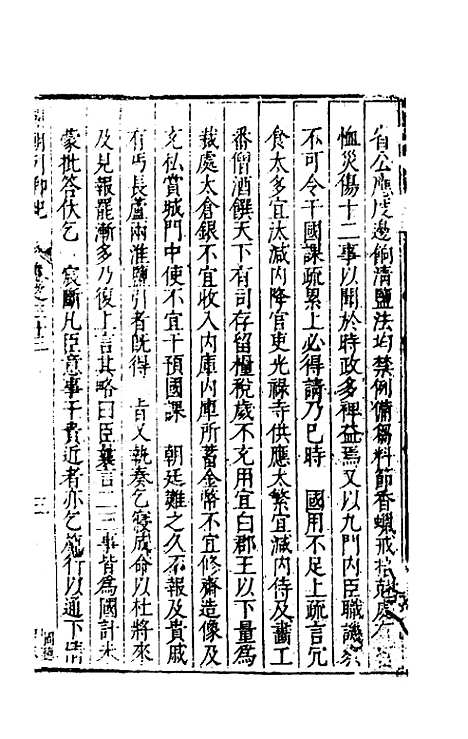 省公應度邊餉清鹽法均禁例備芻料節香蠟戒
恤災傷十二事以聞於時政多裨益焉又以九門內臣職譏
不可令干國課疏累上必得請乃已時 國用不足上疏言冗
食太多宜汰減內降官吏光祿寺供應太繁宜減內侍及畫工
番僧酒饌天下有司存留糧稅歲不充用宜自郡王以下量為
裁處太倉銀不宜收入內庫內庫所蓄金幣不宜修齋造像及
充私賞城門中使不宜干預國課 朝廷難之久不報及貴戚
有丐長蘆兩淮鹽引者既得 旨又執奏乞寢成命以杜將來
及見報罷漸多乃復上言其略曰臣襄言二三事皆為國計未
蒙批答伏乞 宸斷凡臣意事干貴近者亦乞施行以通下情
朝列卿
三十三
三